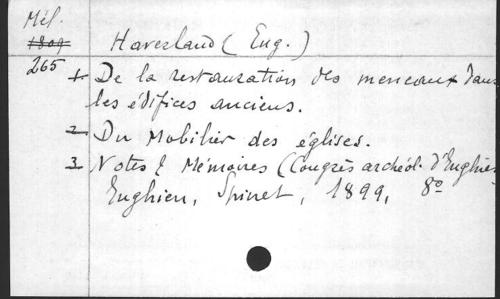 Mél.
1809
265
Haverland (Eug.)
1 De la restauration des meneaux dans
les édifices anciens.
2 Du Mobilier des églises.
3 Notes & Mémoires (Congrès archéol. d'Enghien
Enghien, Spinet, 1899, 8º